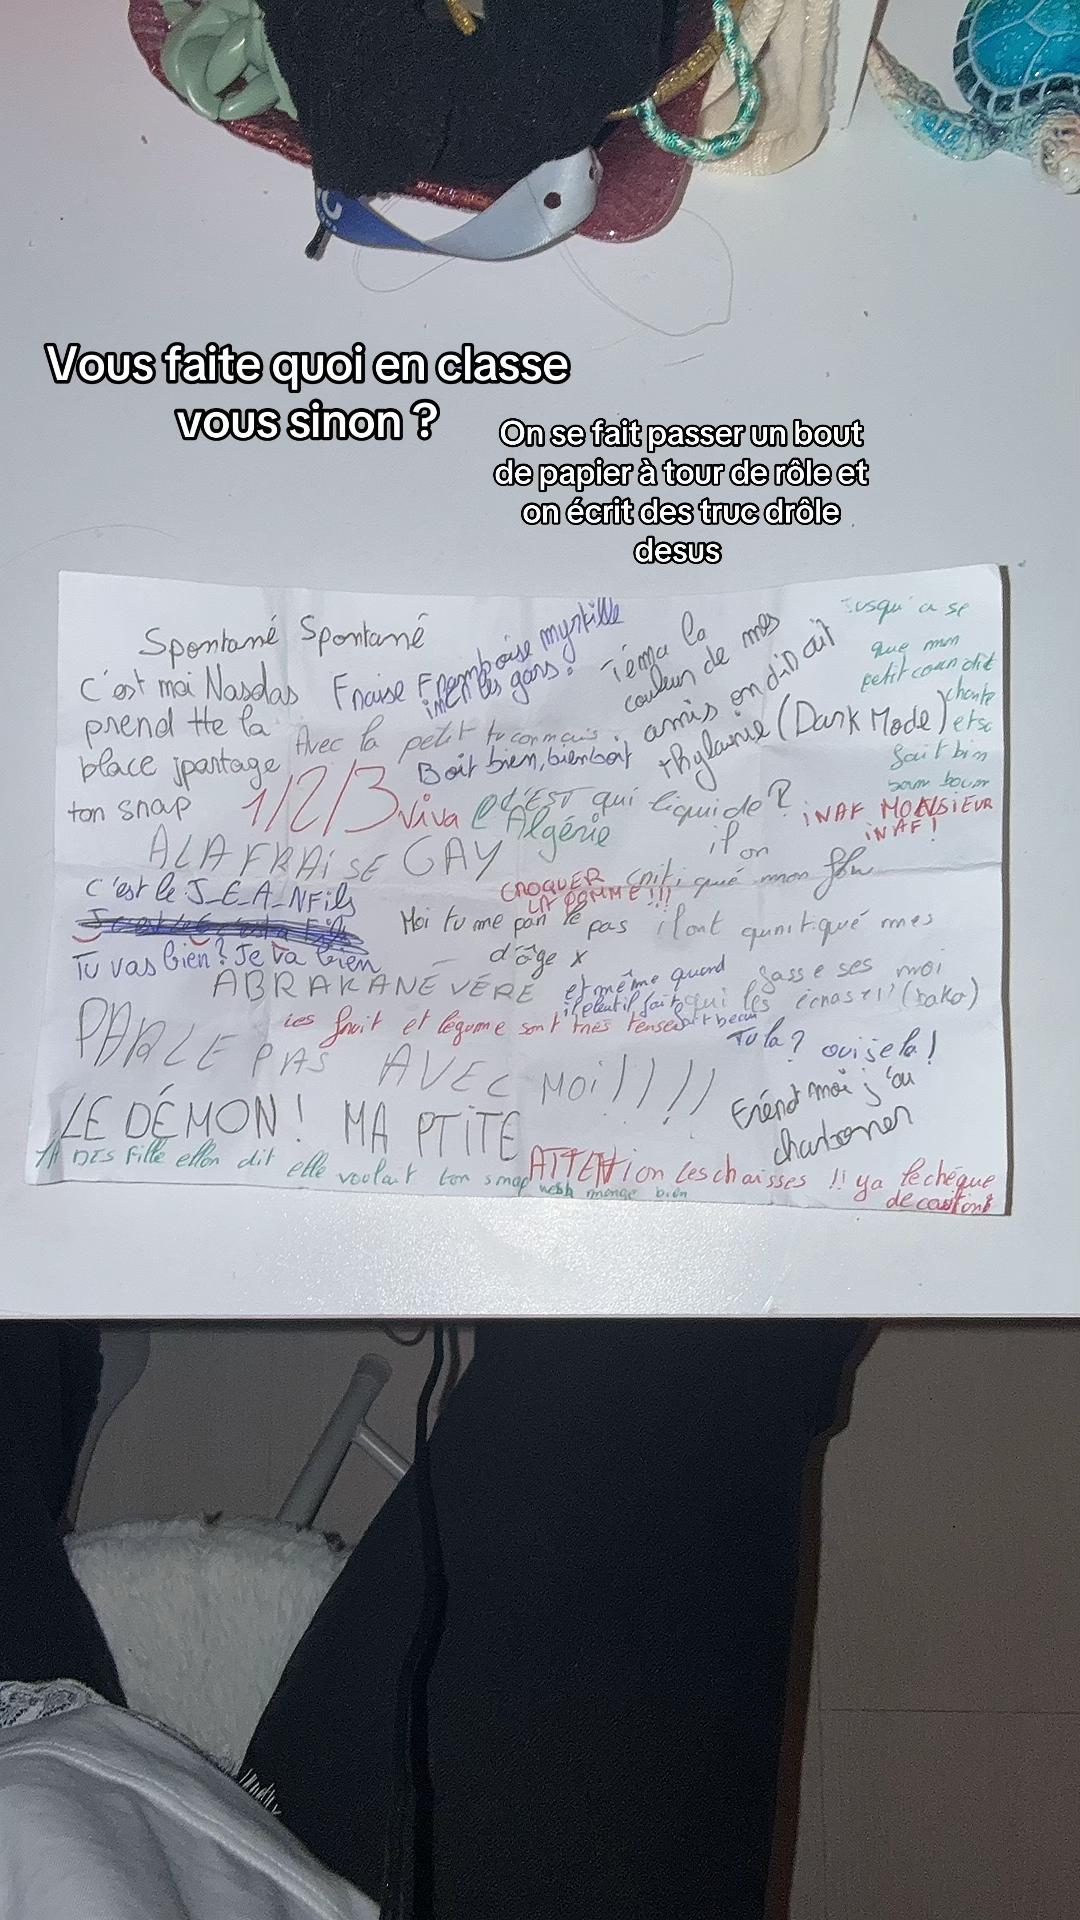 Vous faite quoi en classe
vous sinon ?
On se fait passer un bout
de papier à tour de rôle et
on écrit des truc drôle
desus
Spontané Spontané
C'est moi Nasdas
prend tte la
place jpartage
ton snap
Fraise Framboise myrtille
les gars.
Téma la
couleur de mes
amis on dirait
thylanie (Dark Mode)
Jusqu'a se
que mon
petit
chante
et sa
fait bim
bam boum
Avec la petit tu connais
Boit bien, bien boit
1/2/3 viva l'Algérie
C'EST qui liquide ?
iNAF MONSIEUR
iNAF !
ALA FRAiSE GAY
il on
critiqué mon flow
CROQUER
LA POMME !!!
C'est le J_E_A_N Fils
Moi tu me parle pas
d'âge x
il ont
mes
Tu vas bien ? Je va bien
ABRAKANÉVÉRÉ
et même quand
il pleut il fait
fait beau
fasse ses moi
qui les
PARLE PAS AVEC MOi !!!!
les fruit et légume sont très tense
Tu la ? oui je la !
LE DÉMON ! MA PTiTE
j'au
charbonner
DIS Fille
dit elle voulait ton snap
wesh mange bien
ATTENtion les chaisses !! ya